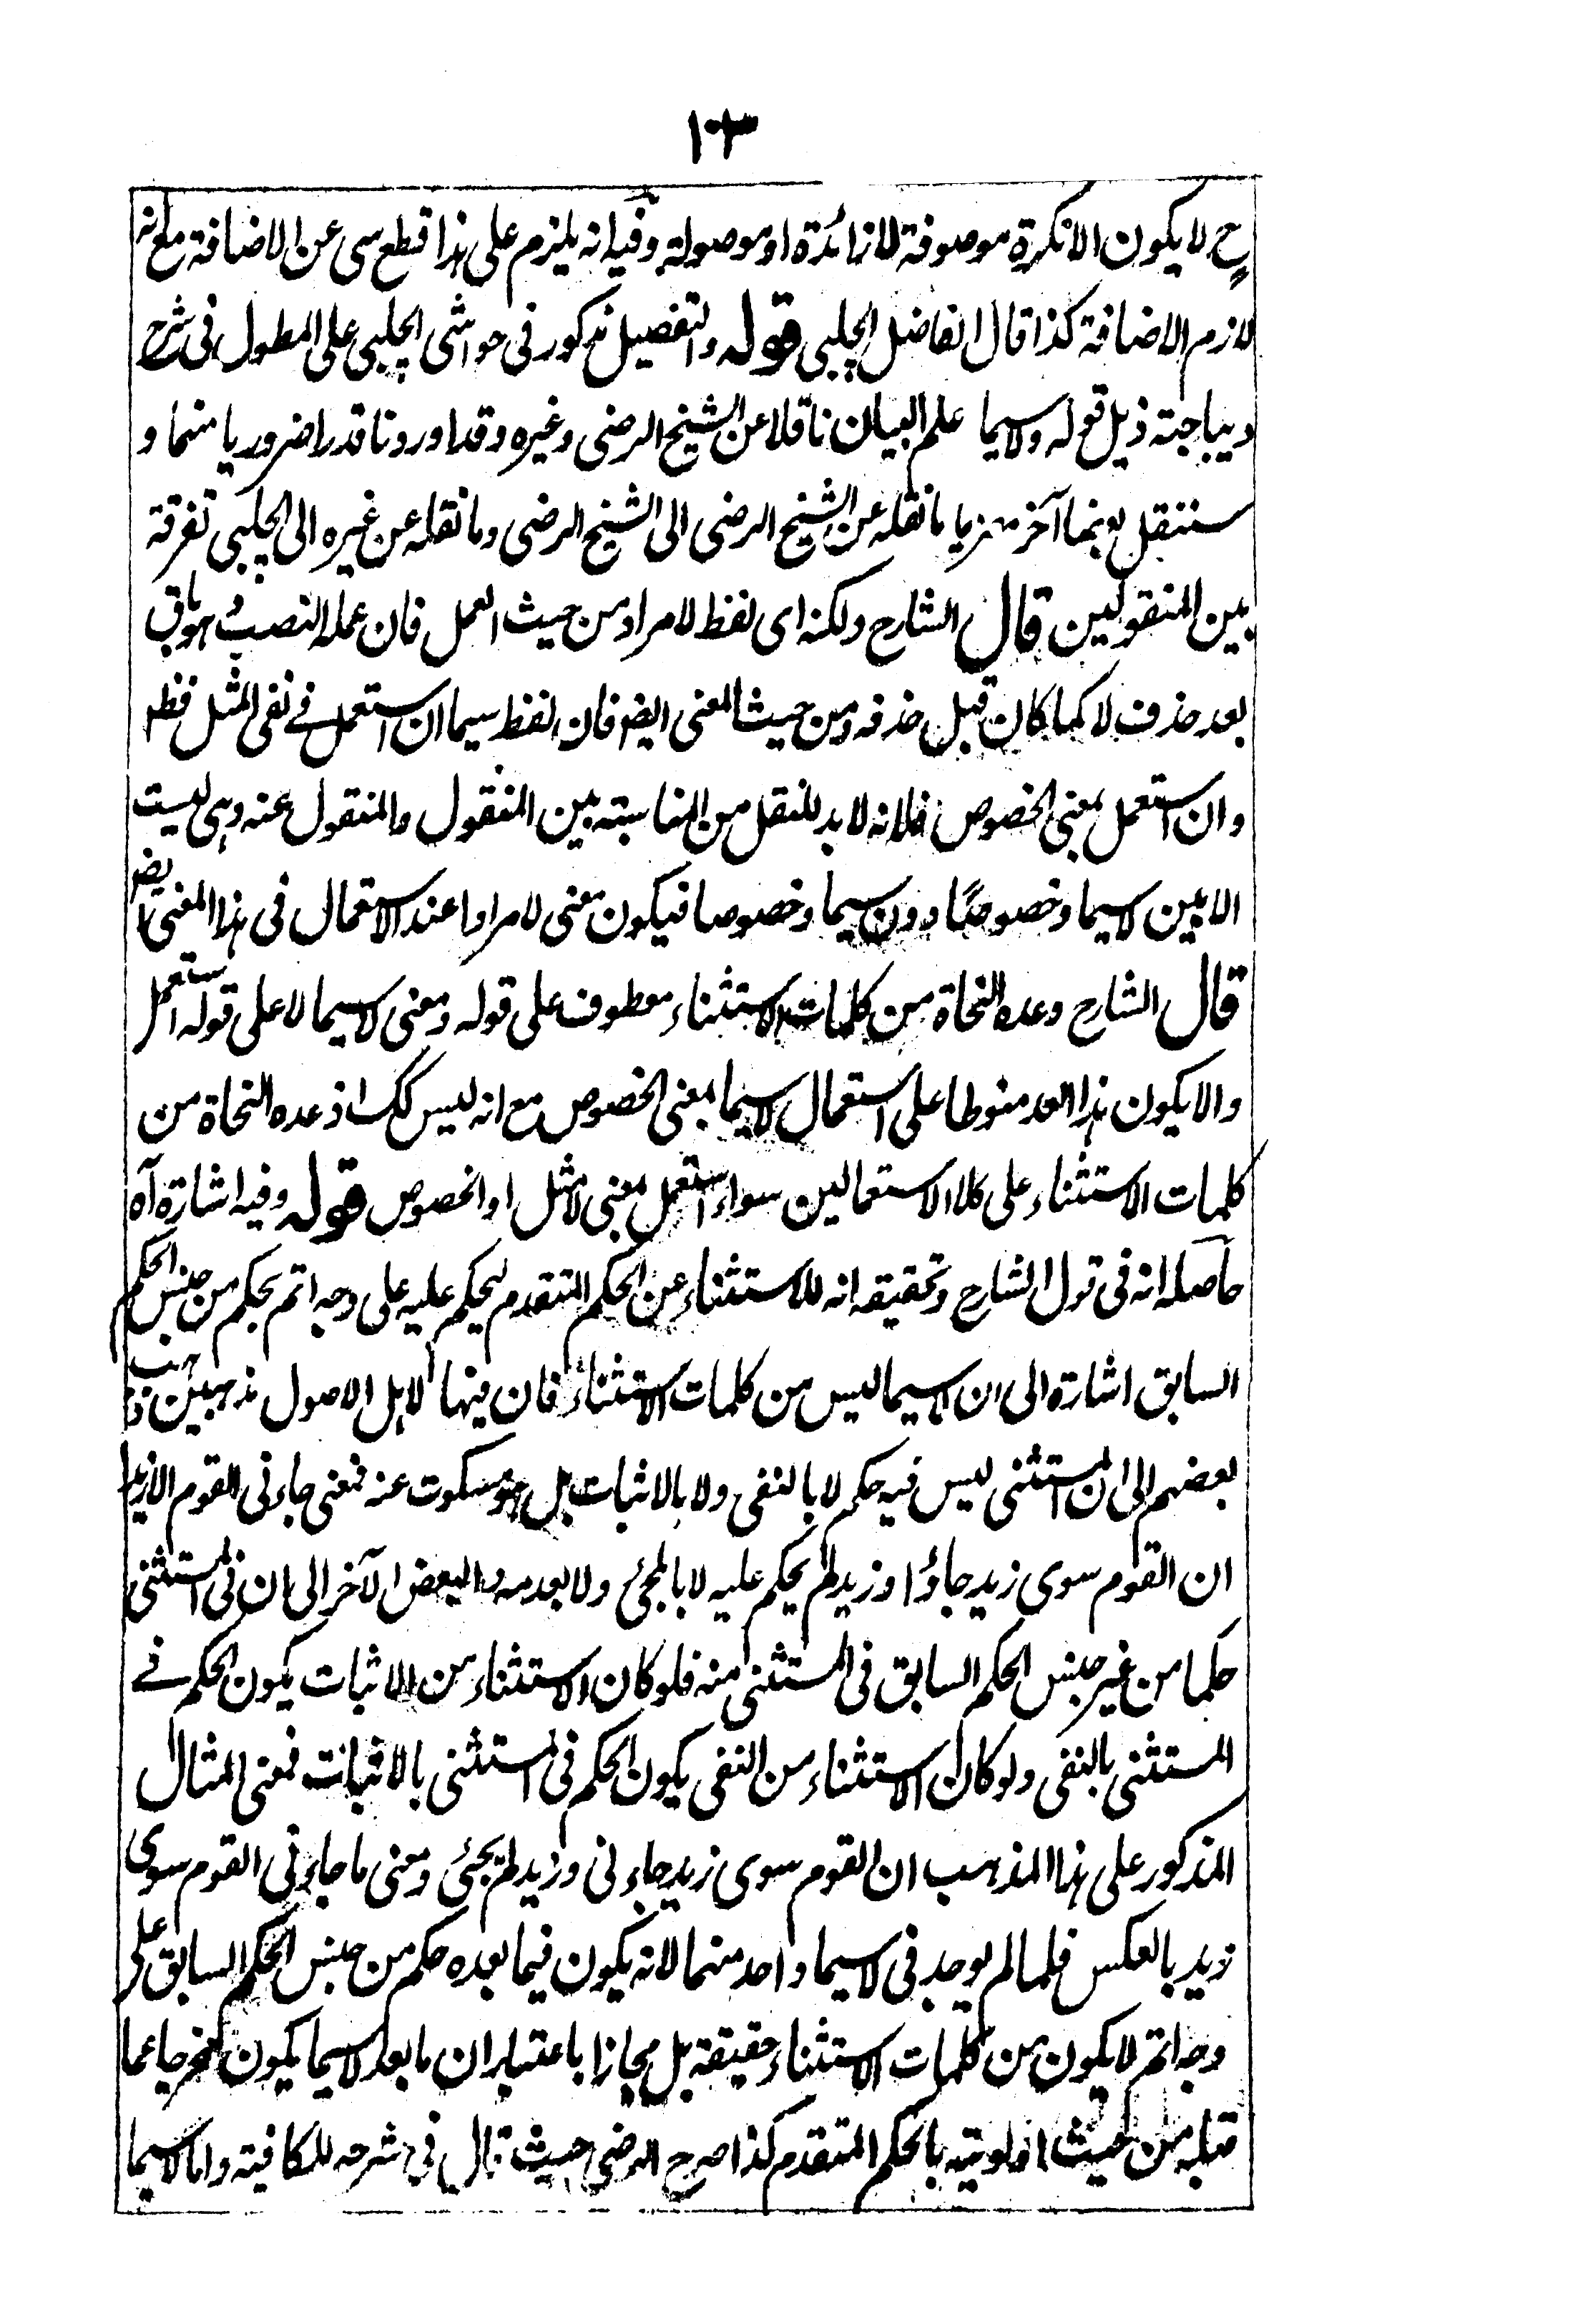 ١٠٣
ح لا يكون الا نكرة موصوفة لا زائدة او موصولة وفيه انه يلزم على هذا قطع سى عن الاضافة مع انه
لازم الاضافة كذا قال الفاضل الچلپى قوله والتفصيل مذكور فى حواشى الچلپى على المطول فى شرح
ديباجته ذيل قوله ولا سيما علم البيان ناقلا عن الشيخ الرضى وغيره وقد اوردنا قدرا ضروريا منهما و
سننقل بعضا آخر معزيا ما نقله عن الشيخ الرضى الى الشيخ الرضى وما نقله عن غيره الى الچلپى تفرقة
بين المنقولين قال الشارح ولكنه اى لفظ لا مراد من حيث العمل فان عمله النصب وهو باق
بعد حذف لا كما كان قبل حذفه ومن حيث المعنى ايضا فان لفظ سيما ان استعمل فے نفى المثل فظاهر
وان استعمل بمعنى الخصوص فلانه لا بد للنقل من المناسبته بين المنقول والمنقول عنه وهى ليست
الا بين لا سيما وخصوصًا دون سيما وخصوصا فيكون معنى لا مرادا عند الاستعمال فى هذا المعنى ايضا
قال الشارح وعده النحاة من كلمات الاستثناء معطوف على قوله ومعنى لا سيما لا على قوله استعمل
والا يكون هذا العد منوطا على استعمال لا سيما بمعنى الخصوص مع انه ليس كك اذ عده النحاة من
كلمات الاستثناء على كلا الاستعمالين سواء استعمل بمعنى لا مثل او الخصوص قوله وفيه اشارة آه
حاصله انه فى قول الشارح وتحقيقه انه للاستثناء عن الحكم المتقدم ليحكم عليه على وجه اتم بحكم من جنس الحكم
السابق اشارة الى ان لا سيما ليس من كلمات الاستثناء فان فيها لاهل الاصول مذهبين ذهب
بعضهم الى ان المستثنى ليس فيه حكم لا بالنفى ولا بالاثبات بل هو مسكوت عنه فمعنى جاءنى القوم الا زيدا
ان القوم سوى زيد جاؤا وزيد لم يحكم عليه لا بالمجئ ولا بعدمه والبعض الآخر الى ان فى المستثنى
حكما من غير جنس الحكم السابق فى المستثنى منه فلو كان الاستثناء من الاثبات يكون الحكم فے
المستثنى بالنفى ولو كان الاستثناء من النفى يكون الحكم فى المستثنى بالاثبات فمعنى المثال
المذكور على هذا المذهب ان القوم سوى زيد جاءنى وزيد لم يجئ ومعنى ما جاءنى القوم سوى
زيد بالعكس فلما لم يوجد فى لا سيما واحد منهما لانه يكون فيما بعده حكم من جنس الحكم السابق على
وجه اتم لا يكون من كلمات الاستثناء حقيقة بل مجازا باعتبار ان ما بعد لا سيما يكون مخرجا عما
قبله من حيث اولويته بالحكم المتقدم كذا صرح الرضى حيث قال فى شرحه للكافيته واما لا سيما